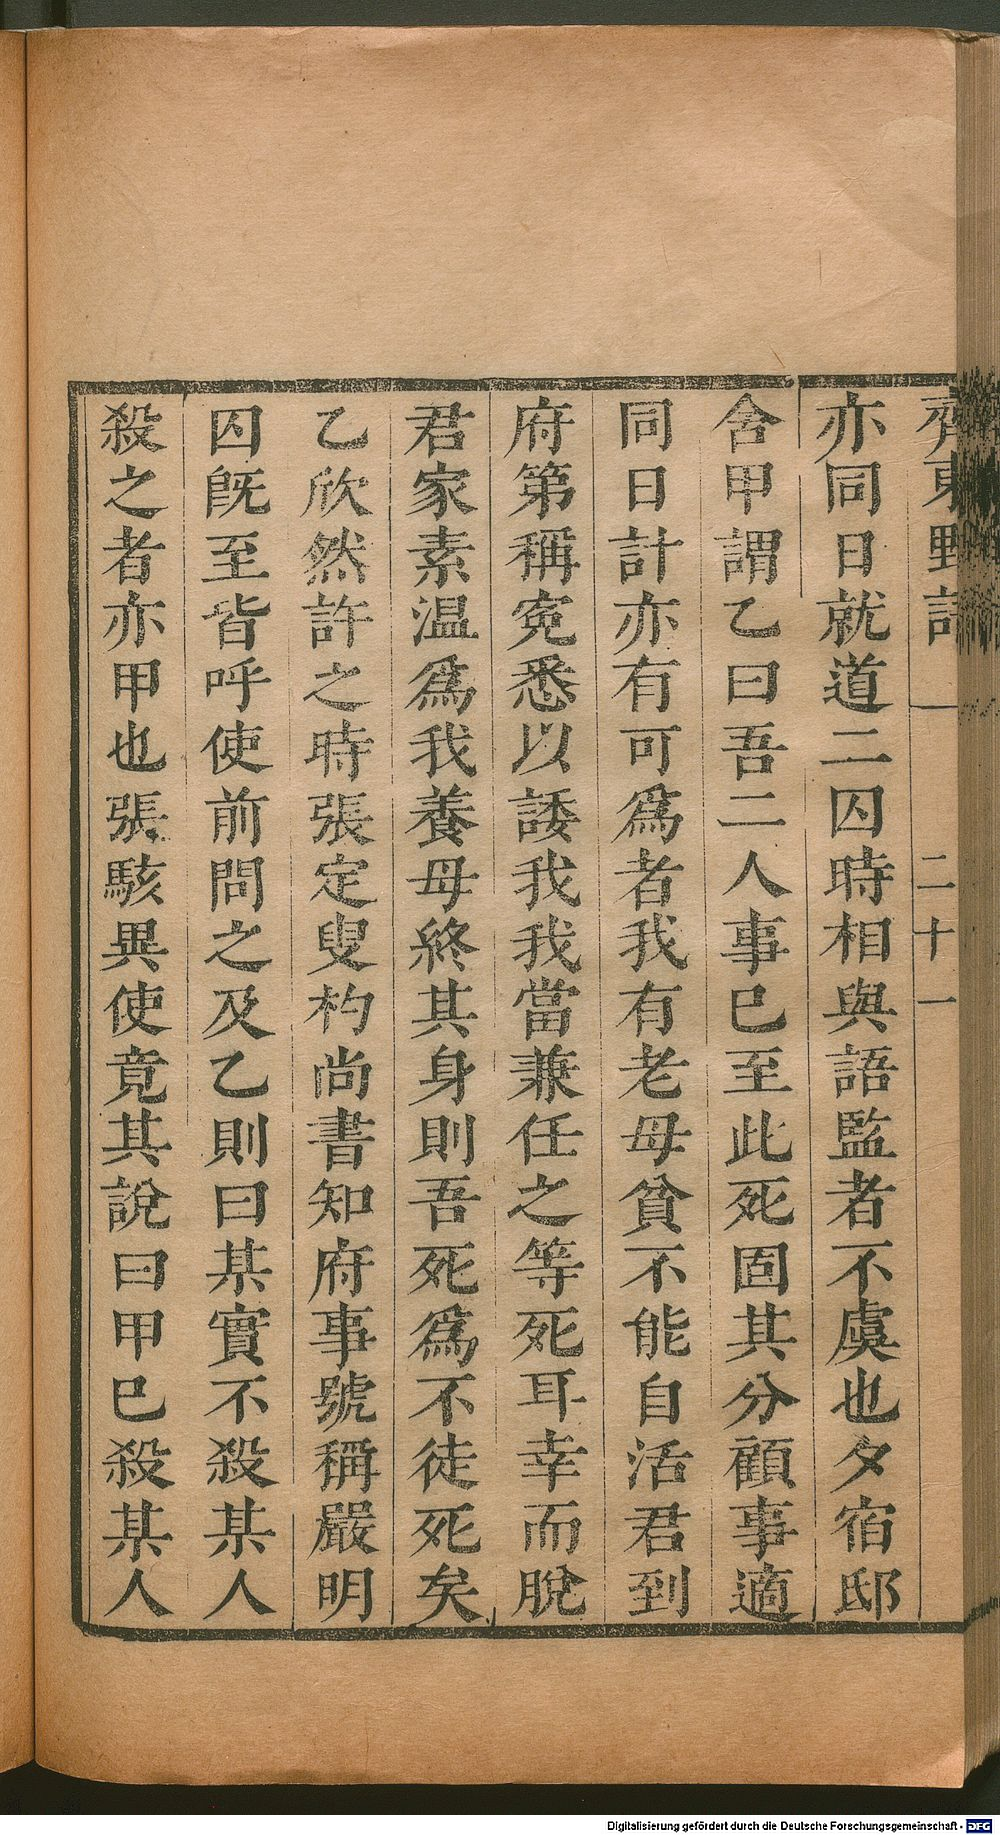 齊東野語 二十一
亦同日就道二囚時相與語監者不虞也夕宿邸
舍甲謂乙曰吾二人事已至此死固其分顧事適
同日計亦有可爲者我有老母貧不能自活君到
府第稱寃悉以諉我我當兼任之等死耳幸而脫
君家素温爲我養母終其身則吾死爲不徒死矣
乙欣然許之時張定叟杓尚書知府事號稱嚴明
囚旣至皆呼使前問之及乙則曰某實不殺某人
殺之者亦甲也張駭異使竟其說曰甲已殺某人
Digitalisierung gefördert durch die Deutsche Forschungsgemeinschaft - DFG